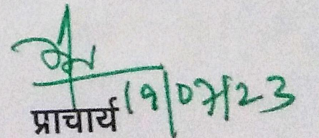 प्राचार्य 19/07/23